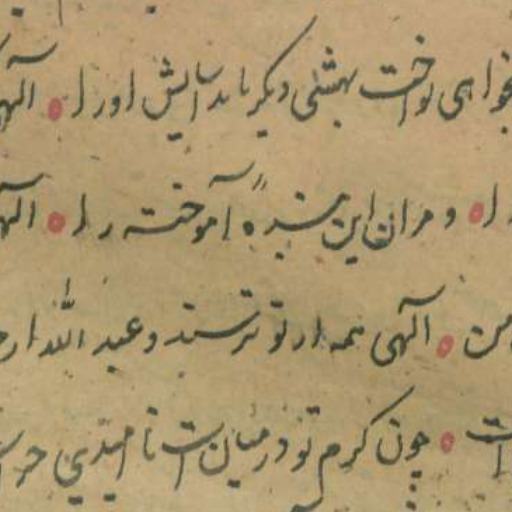 خواهی نواخت بهشتی دیگر باید آسایش او را ه آلهی
را ه و مران این شیره آموخته را ه آلهی
من ه آلهی همه از تو ترسند و عبد الله از
است ه چون کرم تو در میان است نا امیدی حرا